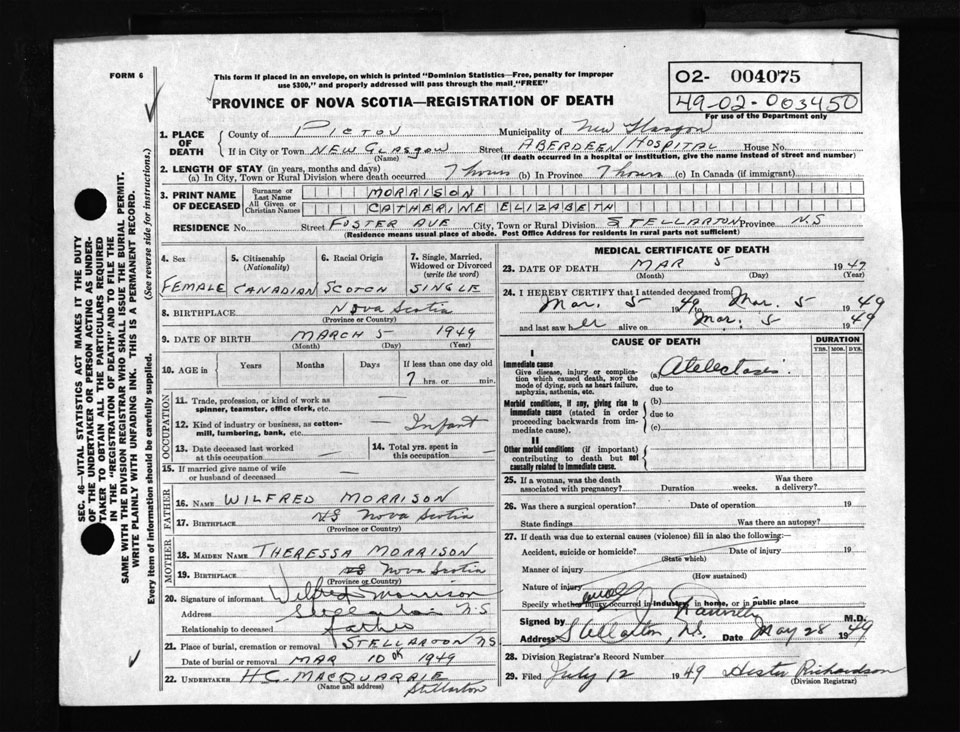 FORM 6
This form if placed in an envelope, on which is printed "Dominion Statistics—Free, penalty for improper
use $300," and properly addressed will pass through the mail, "FREE"
PROVINCE OF NOVA SCOTIA—REGISTRATION OF DEATH
02- 004075
49-02-003450
For use of the Department only
SEC. 46—VITAL STATISTICS ACT MAKES IT THE DUTY
OF THE UNDERTAKER OR PERSON ACTING AS UNDER-
TAKER TO OBTAIN ALL THE PARTICULARS REQUIRED
IN THE "REGISTRATION OF DEATH" AND TO FILE THE
SAME WITH THE DIVISION REGISTRAR WHO SHALL ISSUE THE BURIAL PERMIT.
WRITE PLAINLY WITH UNFADING INK. THIS IS A PERMANENT RECORD.
Every item of information should be carefully supplied. (See reverse side for instructions.)
1. PLACE OF DEATH
County of PICTOU Municipality of New Glasgow
If in City or Town NEW GLASGOW Street ABERDEEN HOSPITAL House No.
(Name) (If death occurred in a hospital or institution, give the name instead of street and number)
2. LENGTH OF STAY (in years, months and days)
(a) In City, Town or Rural Division where death occurred 7 hours (b) In Province 7 hours (c) In Canada (if immigrant)
3. PRINT NAME OF DECEASED
Surname or Last Name MORRISON
All Given or Christian Names CATHERINE ELIZABETH
RESIDENCE No. Street FOSTER AVE City, Town or Rural Division STELLARTON Province N.S
(Residence means usual place of abode. Post Office Address for residents in rural parts not sufficient)
4. Sex FEMALE
5. Citizenship (Nationality) CANADIAN
6. Racial Origin SCOTCH
7. Single, Married, Widowed or Divorced (write the word) SINGLE
8. BIRTHPLACE Nova Scotia
(Province or Country)
9. DATE OF BIRTH MARCH 5 1949
(Month) (Day) (Year)
10. AGE in Years Months Days If less than one day old
7 hrs. or min.
OCCUPATION
11. Trade, profession or kind of work as
spinner, teamster, office clerk, etc. —
12. Kind of industry or business, as cotton-
mill, lumbering, bank, etc. — Infant
13. Date deceased last worked
at this occupation —
14. Total yrs. spent in
this occupation —
15. If married give name of wife
or husband of deceased —
FATHER
16. NAME WILFRED MORRISON
17. BIRTHPLACE NS Nova Scotia
(Province or Country)
MOTHER
18. MAIDEN NAME THERESSA MORRISON
19. BIRTHPLACE NS Nova Scotia
(Province or Country)
20. Signature of informant Wilfred Morrison
Address Stellarton N.S
Relationship to deceased father
21. Place of burial, cremation or removal STELLARTON N.S.
Date of burial or removal MAR 10th 1949
22. UNDERTAKER H.C. MACQUARRIE
(Name and address) Stellarton
MEDICAL CERTIFICATE OF DEATH
23. DATE OF DEATH MAR 5 1949
(Month) (Day) (Year)
24. I HEREBY CERTIFY that I attended deceased from
Mar. 5 1949 Mar. 5 1949
and last saw her alive on Mar. 5 1949
CAUSE OF DEATH
DURATION
YRS. MOS. DYS.
I
Immediate cause
Give disease, injury or complica-
tion which caused death, NOT the
mode of dying, such as heart failure,
asphyxia, asthenia, etc.
(a) Atelectasis.
due to
Morbid conditions, if any, giving rise to
immediate cause (stated in order
proceeding backwards from im-
mediate cause).
(b)
due to
(c)
II
Other morbid conditions (if important)
contributing to death but not
causally related to immediate cause.
25. If a woman, was the death
associated with pregnancy? Duration weeks. Was there
a delivery?
26. Was there a surgical operation? Date of operation 19
State findings Was there an autopsy?
27. If death was due to external causes (violence) fill in also the following:—
Accident, suicide or homicide? Date of injury 19
(State which)
Manner of injury
(How sustained)
Nature of injury
Specify whether injury occurred in industry, in home, or in public place
Signed by M.D.
Address Stellarton, N.S. Date May 28 1949
28. Division Registrar's Record Number
29. Filed July 12 1949 Hester Richardson
(Division Registrar)